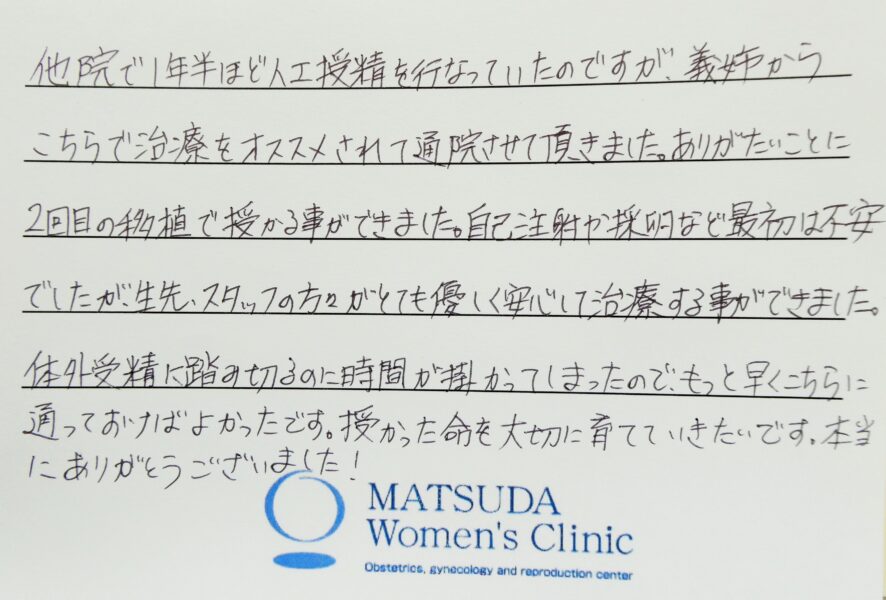 他院で1年半ほど人工授精を行なっていたのですが、義姉から
こちらで治療をオススメされて通院させて頂きました。ありがたいことに
2回目の移植で授かる事ができました。自己注射や採卵など最初は不安
でしたが、生先、スタッフの方々がとても優しく安心して治療する事ができました。
体外受精に踏み切るのに時間が掛かってしまったので、もっと早くこちらに
通っておけばよかったです。授かった命を大切に育てていきたいです。本当
にありがとうございました!
MATSUDA
Women's Clinic
Obstetrics, gynecology and reproduction center